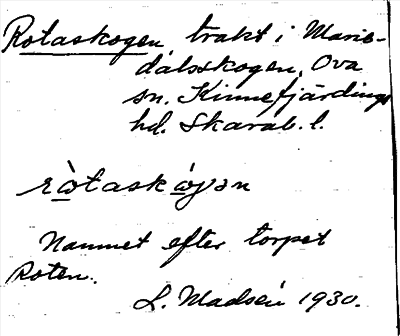 Rotaskogen, trakt i Marie-
dalsskogen, Ova
sn. Kinnefjärdings
hd. Skarab. l.
rὼtaskὼgən
Namnet efter torpet
Roten.
L. Madsén 1930.